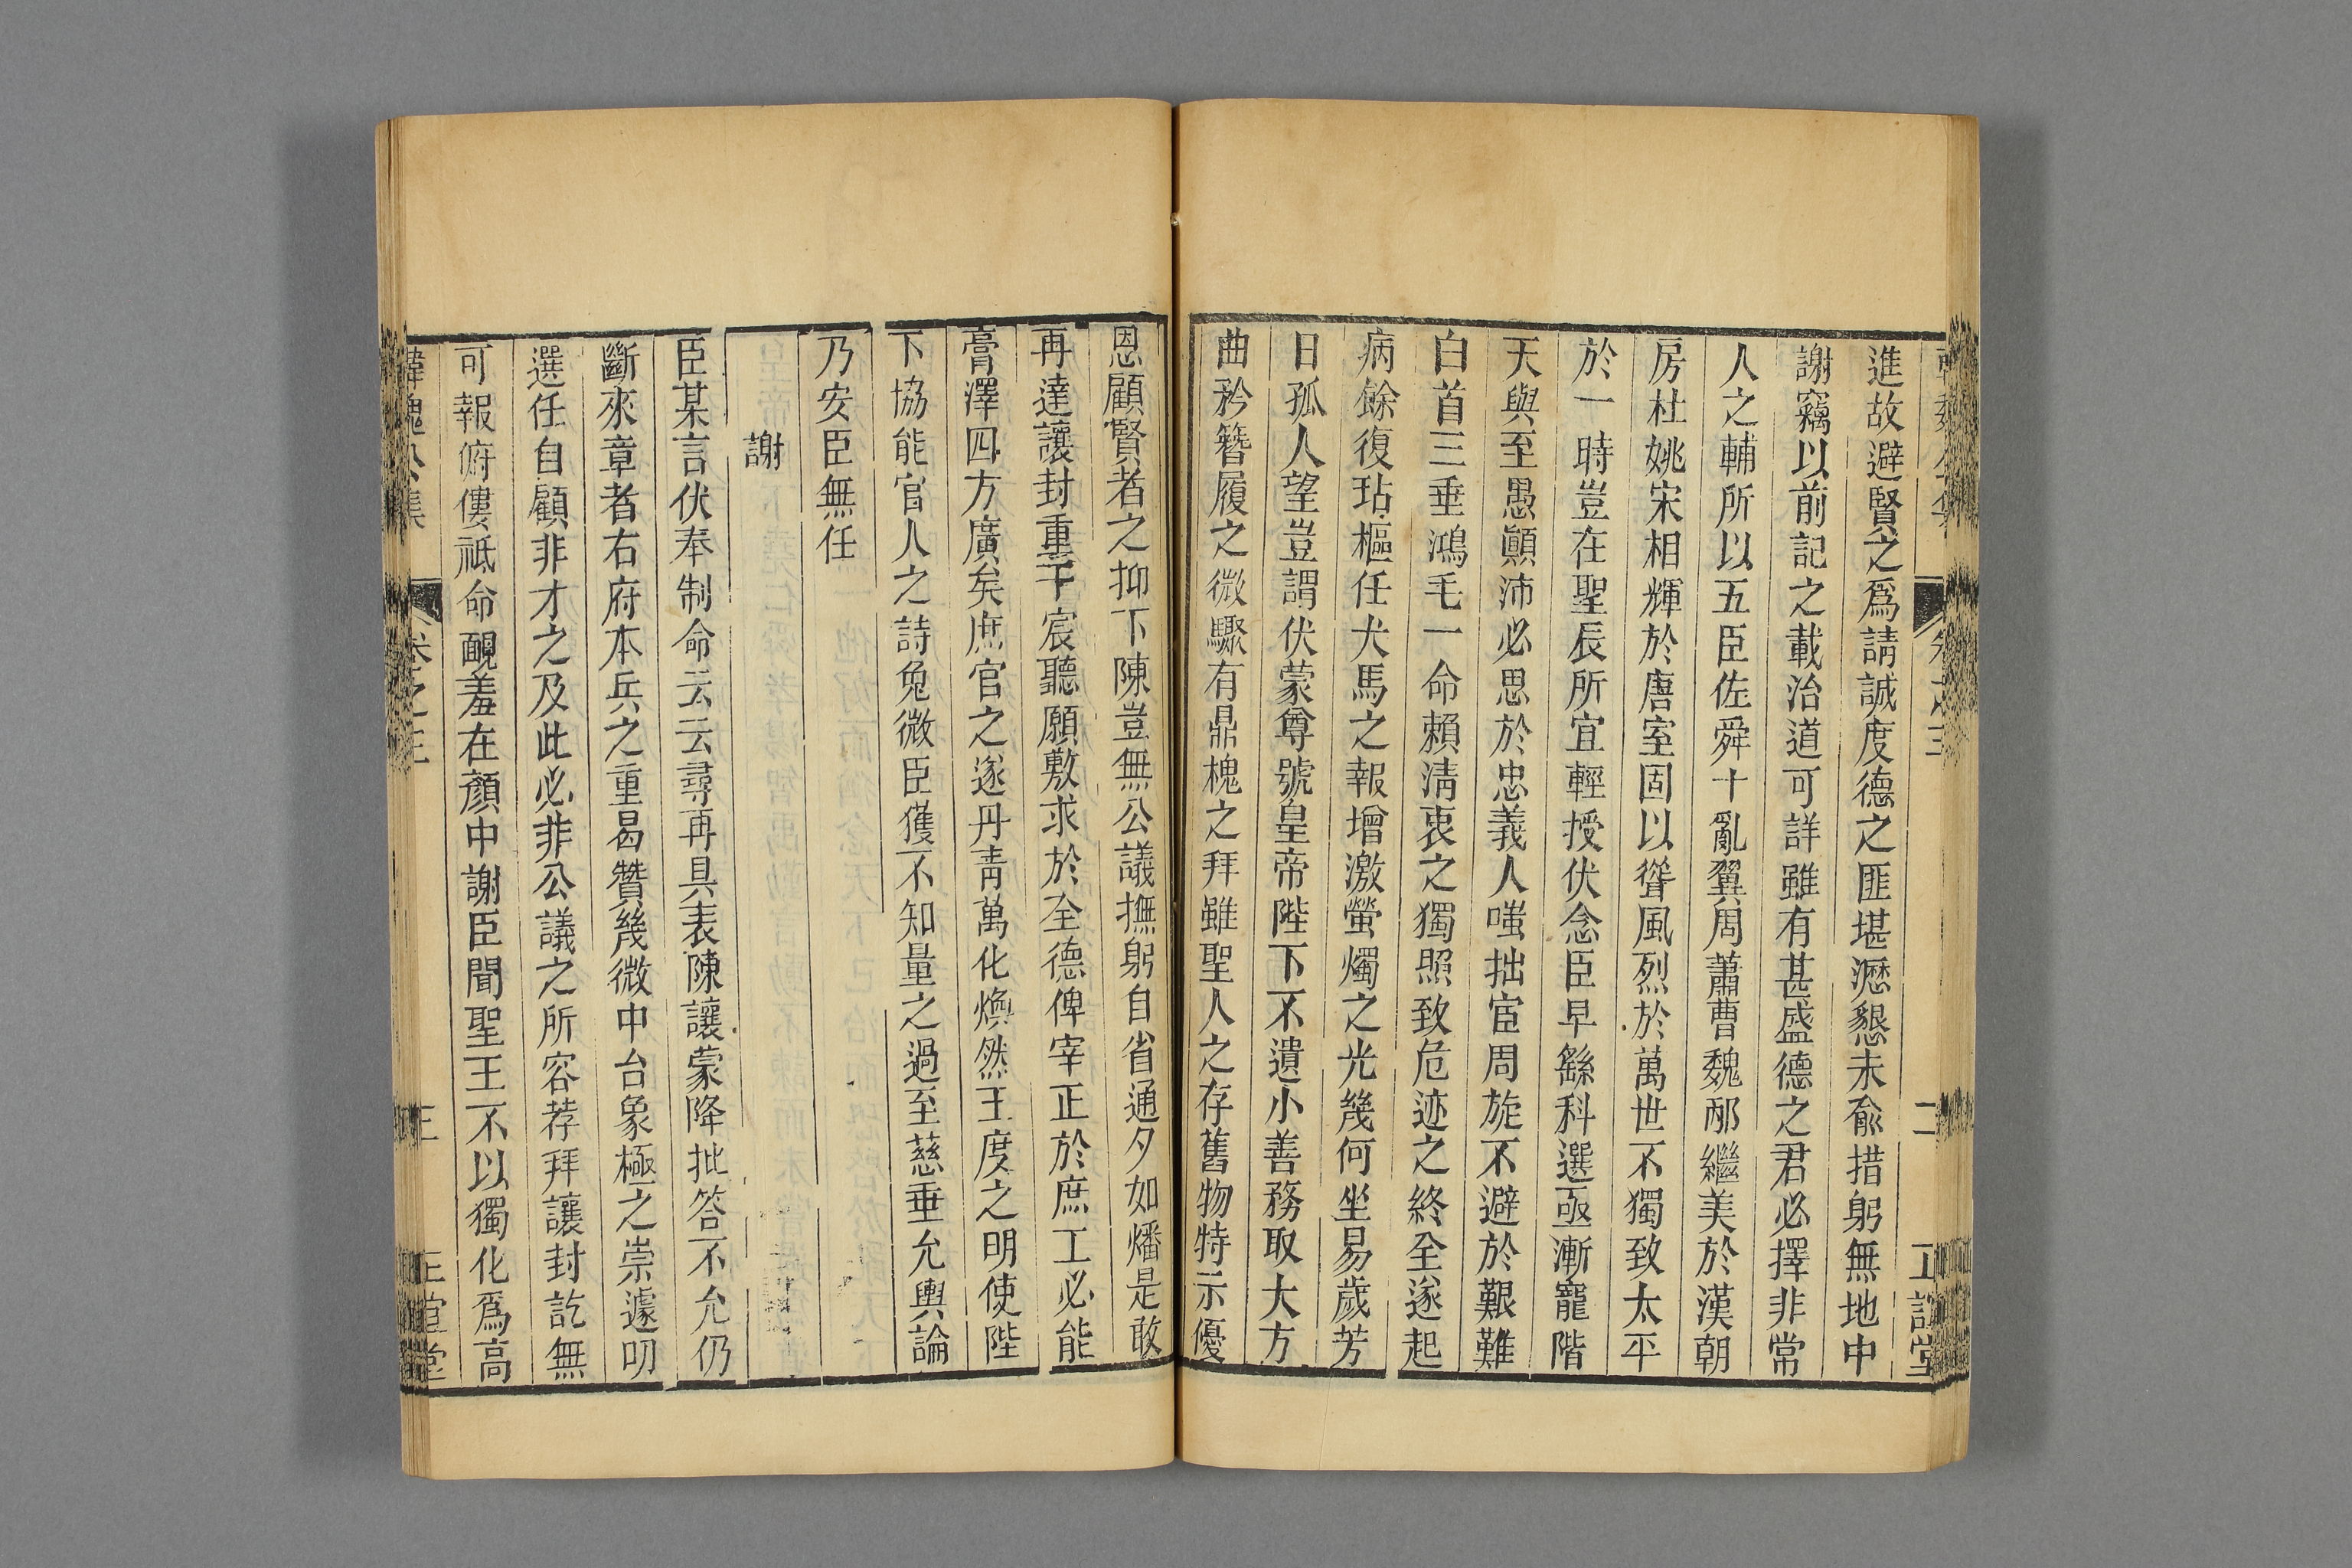 進故避賢之爲請誠度德之匪堪瀝懇未兪措躬無地中
謝竊以前記之載治道可詳雖有甚盛德之君必擇非常
人之輔所以五臣佐舜十亂翼周蕭曹魏邴繼美於漢朝
房杜姚宋相輝於唐室固以聳風烈於萬世不獨致太平
於一時豈在聖辰所宜輕授伏念臣早繇科選亟漸寵階
天與至愚顚沛必思於忠義人嗤拙宦周旋不避於艱難
白首三垂鴻毛一命賴淸衷之獨照致危迹之終全遂起
病餘復玷樞任犬馬之報增激螢燭之光幾何坐易歲芳
日孤人望豈謂伏蒙尊號皇帝陛下不遺小善務取大方
曲矜簪履之微驟有鼎槐之拜雖聖人之存舊物特示優
恩顧賢者之抑下陳豈無公議撫躬自省通夕如燔是敢
再達讓封重干宸聽願敷求於全德俾宰正於庶工必能
膏澤四方廣矣庶官之遂丹靑萬化煥然王度之明使陛
下協能官人之詩免微臣獲不知量之過至慈垂允輿論
乃安臣無任
謝
臣某言伏奉制命云云尋再具表陳讓蒙降批答不允仍
斷來章者右府本兵之重曷贊幾微中台象極之崇遽叨
選任自顧非才之及此必非公議之所容荐拜讓封訖無
可報俯僂祗命靦羞在顏中謝臣聞聖王不以獨化爲高
韓魏公集 卷之三 三 正誼堂